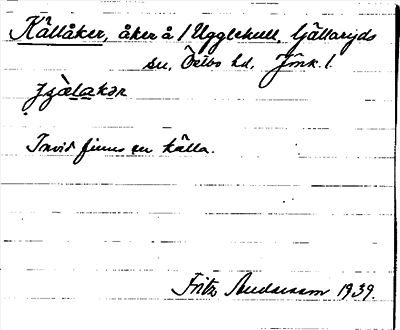 Källåker, åker å 1 Ugglehult, Gällaryds
sn, Östbo hd, Jönk. l.
Invid finns en källa.
Fritz Andersson 1939.